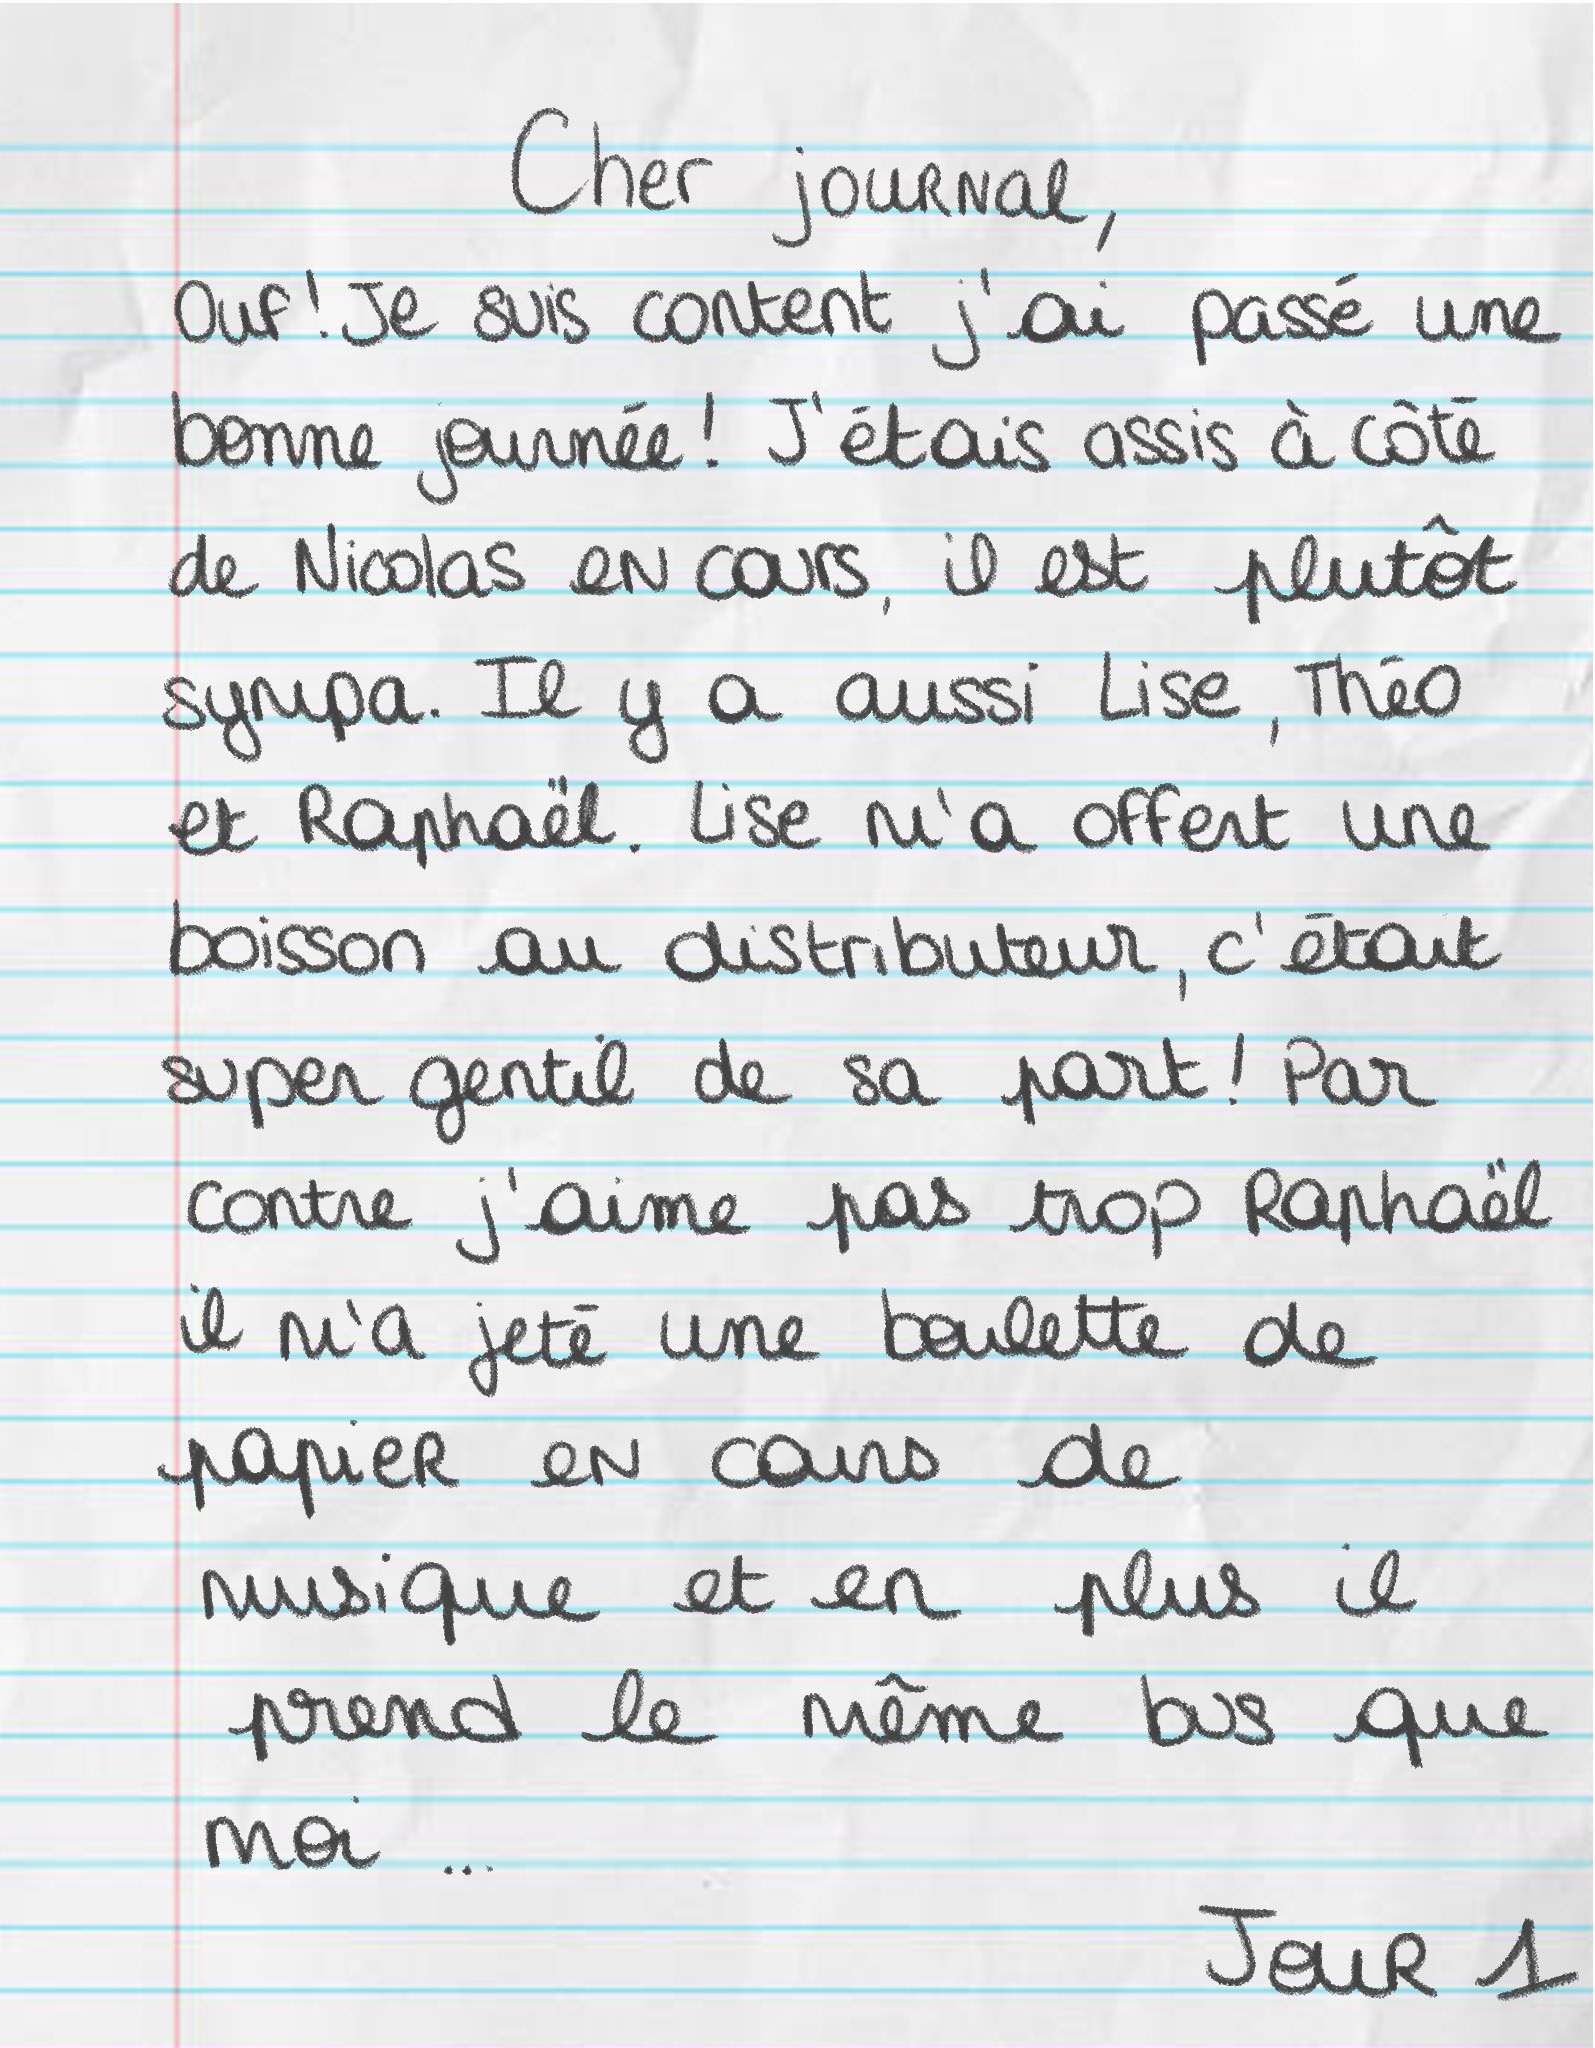 Cher journal,
Ouf! Je suis content j'ai passé une
bonne journée! J'étais assis à côté
de Nicolas en cours, il est plutôt
sympa. Il y a aussi Lise, Théo
et Raphaël. Lise m'a offert une
boisson au distributeur, c'était
super gentil de sa part! Par
contre j'aime pas trop Raphaël
il m'a jeté une boulette de
papier en cours de
musique et en plus il
prend le même bus que
moi...
Jour 1